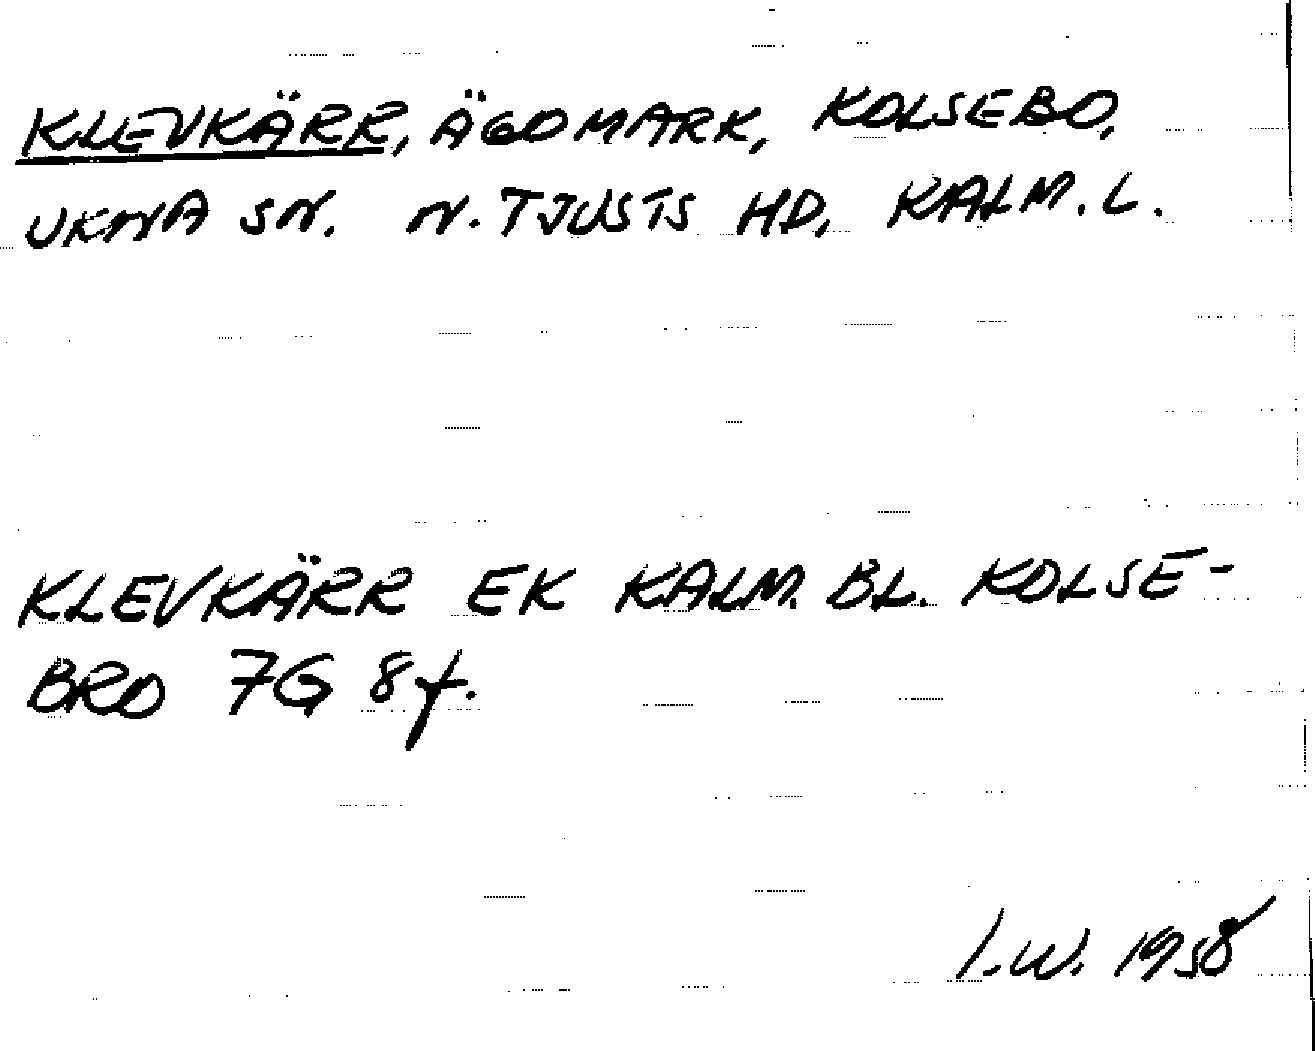 KLEVKÄRR, ÄGOMARK, KOLSEBO,
UKNA SN. N. TJUSTS HD, KALM. L.
KLEVKÄRR EK KALM. BL. KOLSE-
BRO 7G 8f.
I.W. 1958